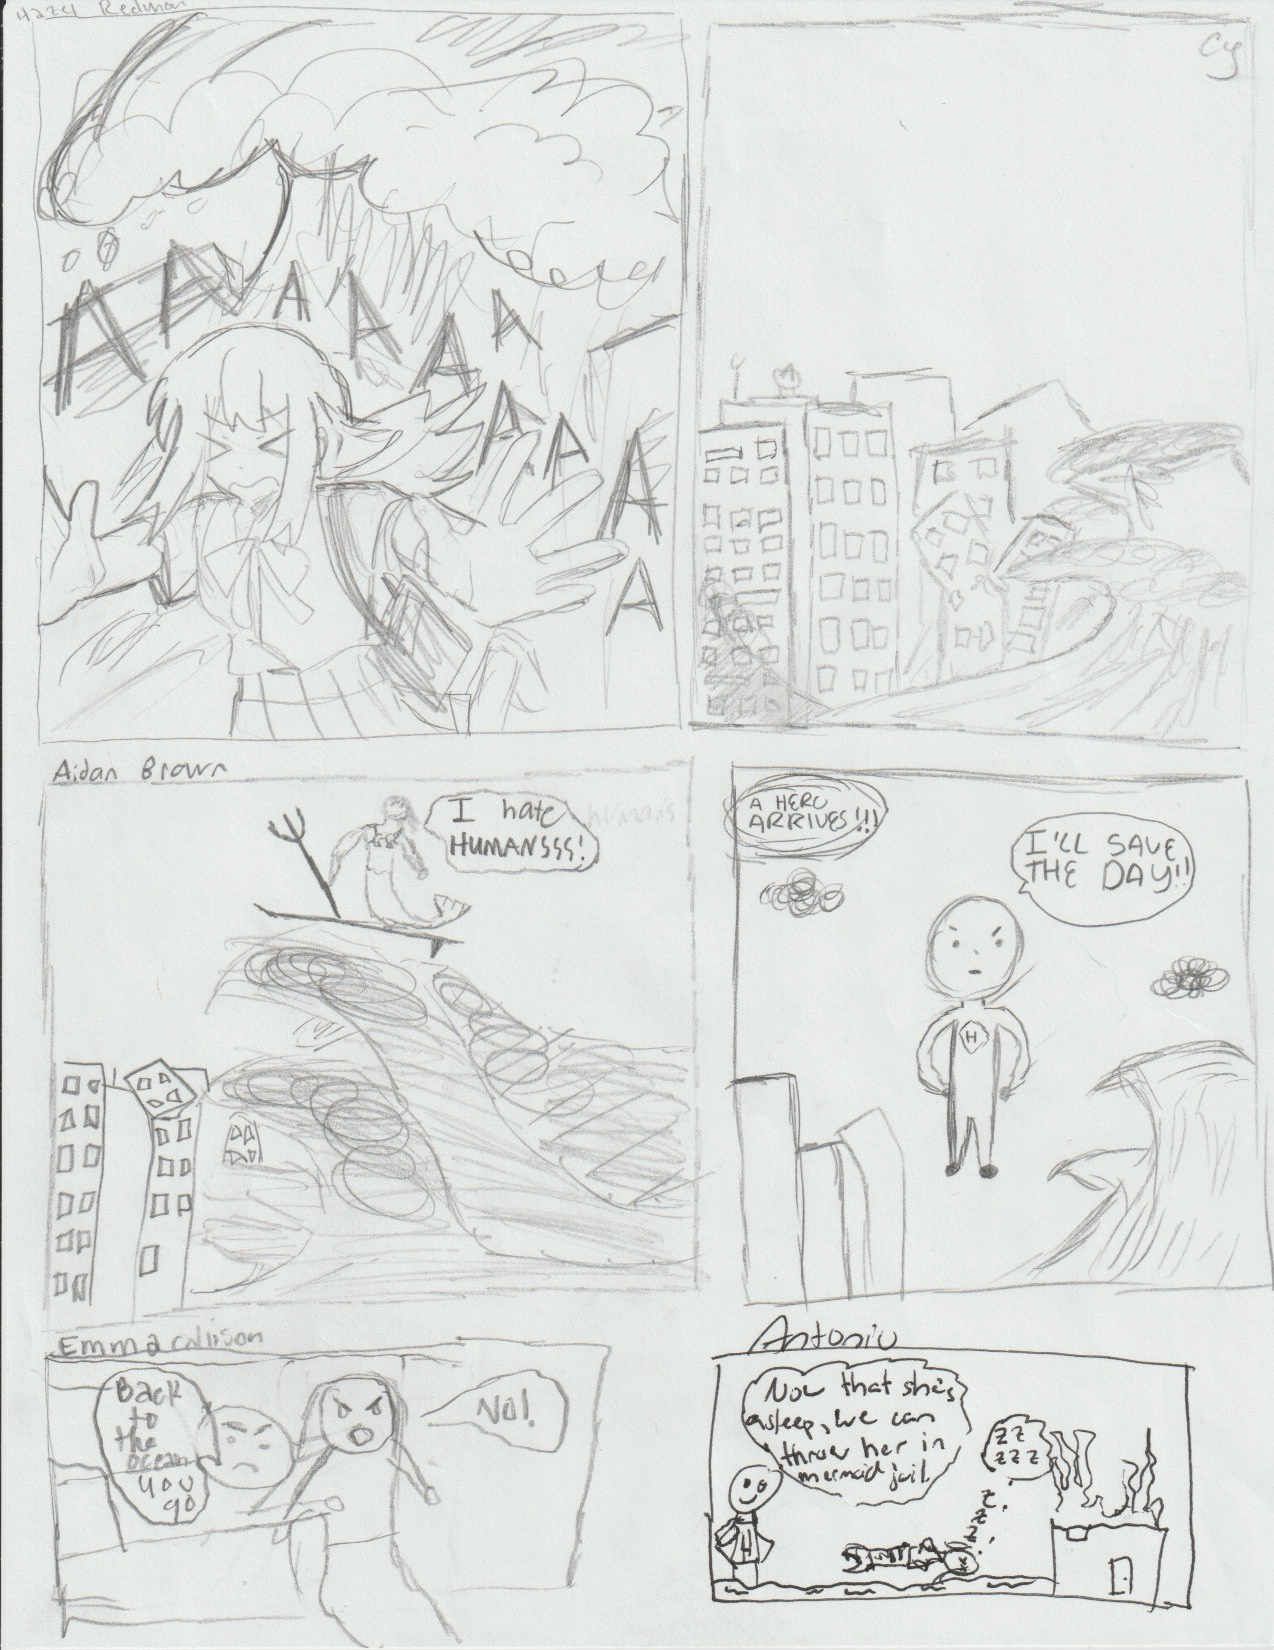 Hazel Redman
Cy
A A A A A A A A A A
Aidan Brown
I hate
HUMANSSS!
humans
A HERO
ARRIVES!!!
I'LL SAVE
THE DAY!!
H
Emma collison
Back
to
the
ocean
you
go
No!
Antonio
Now that she's
asleep, we can
throw her in
mermaid jail.
ZZ
ZZZ
Z
Z
Z
H